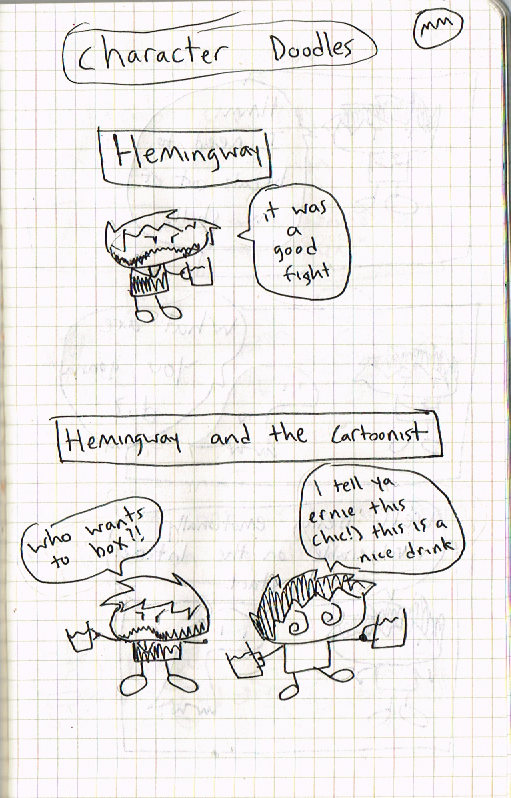 Character Doodles
MM
Hemingway
it was
a
good
fight
Hemingway and the Cartoonist
who wants
to box?!
I tell ya
ernie this
this is a
nice drink